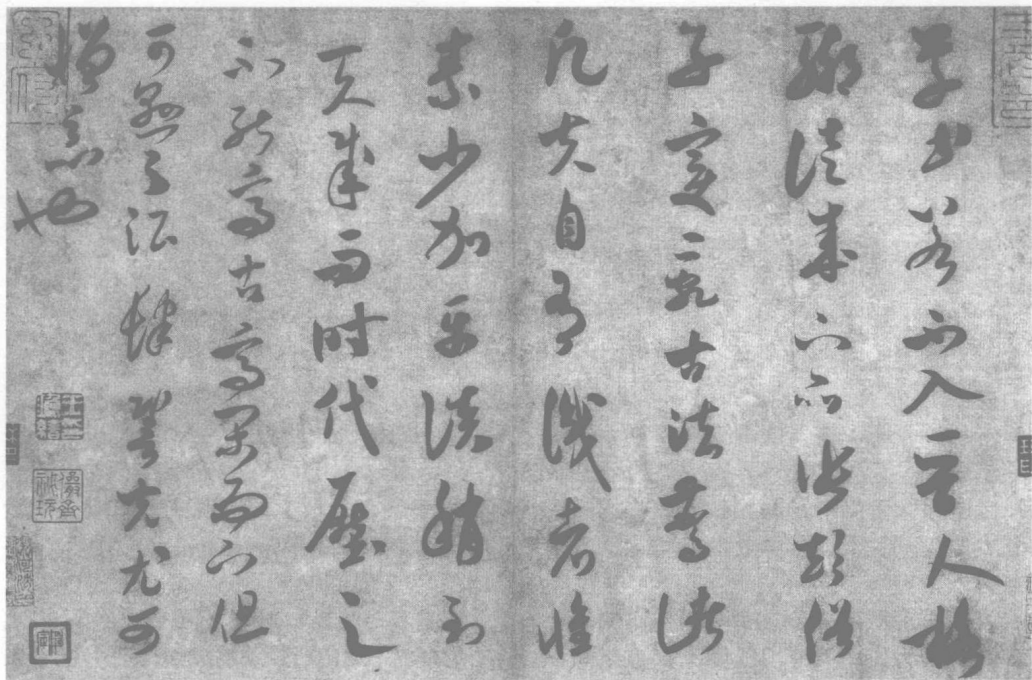 草書若不入晉人格
輙徒成下品張顛俗
子變亂古法驚諸
凡夫自有識者懷
素少加平淡稍到
天成而時代壓之
不能高古高閑而下但
可懸之酒肆䛒光尤可
憎惡也